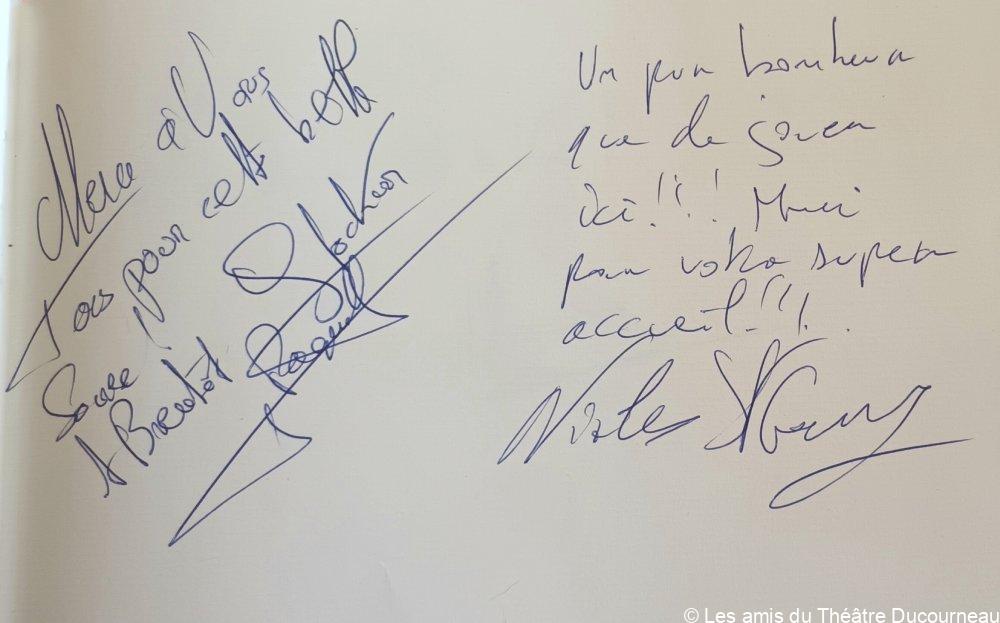 Merci à Vous
Tous pour cette belle
Soirée !
A Bientôt
Un pur bonheur
que de jouer
ici !!! Merci
pour votre superbe
accueil !!!
© Les amis du Théâtre Ducourneau